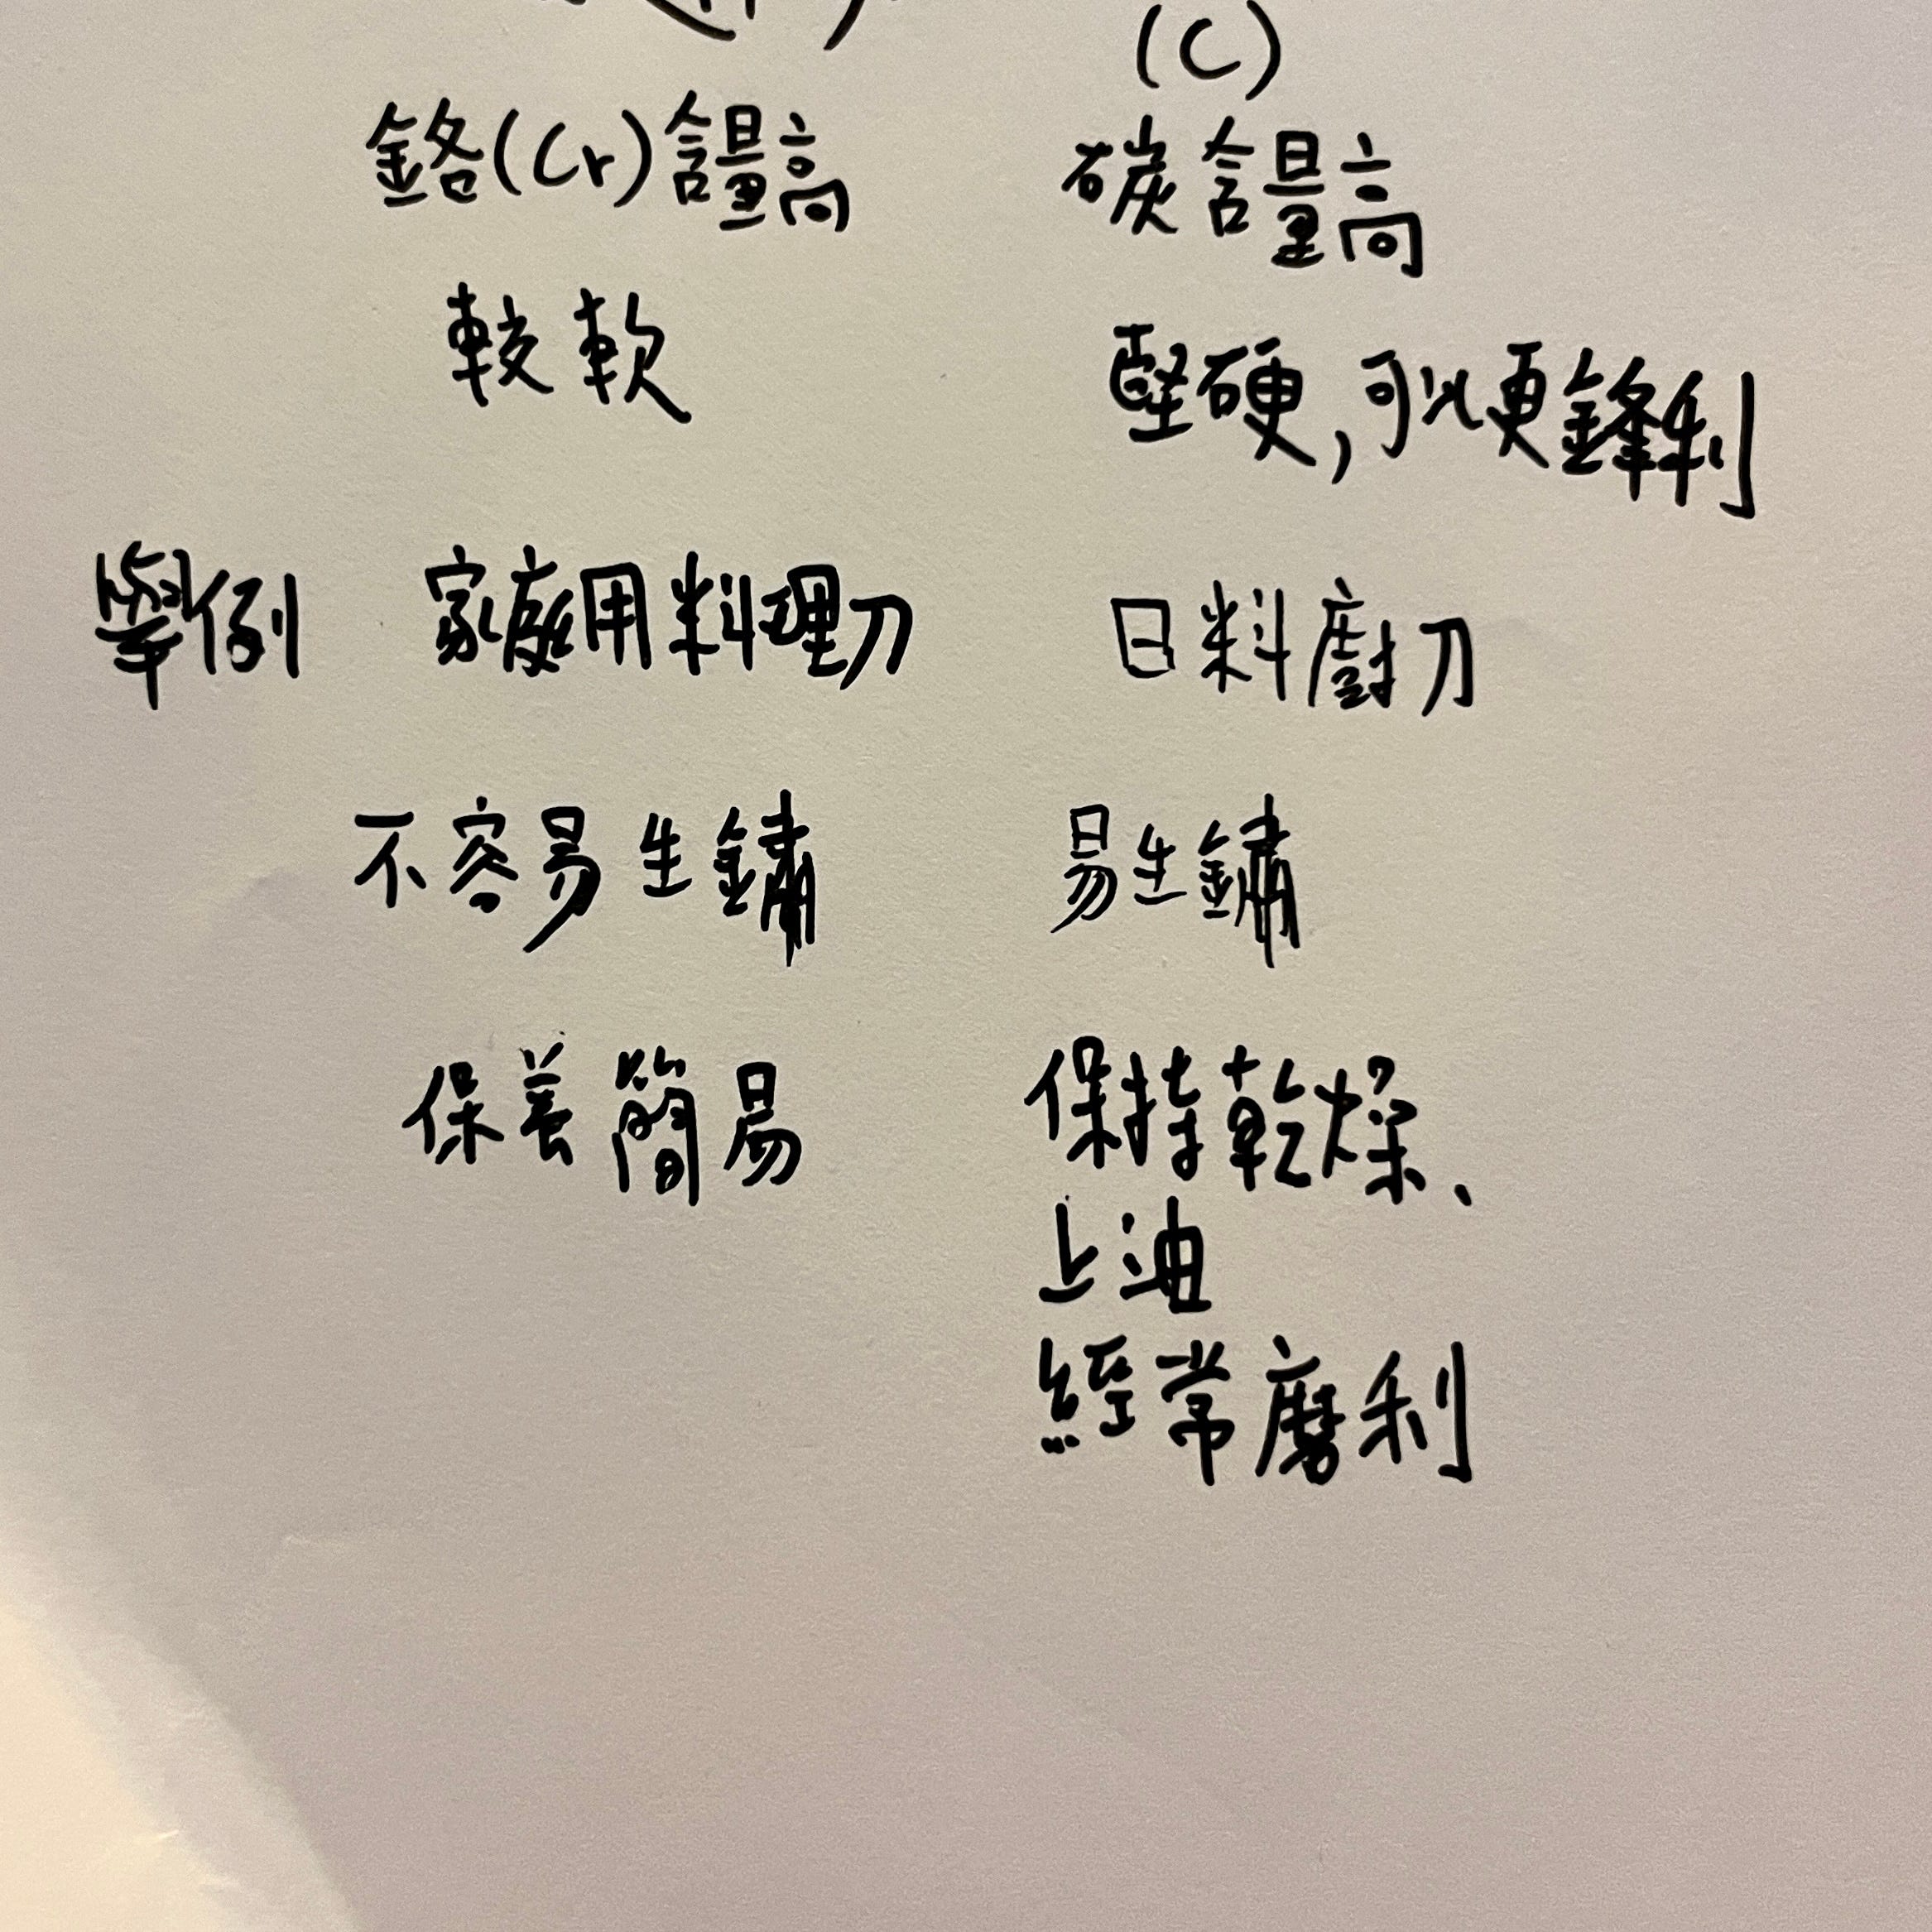 (C)
鉻(Cr)含量高 碳含量高
較軟 堅硬,可以更鋒利
舉例 家庭用料理刀 日料廚刀
不容易生鏽 易生鏽
保養簡易 保持乾燥、
上油
經常磨利